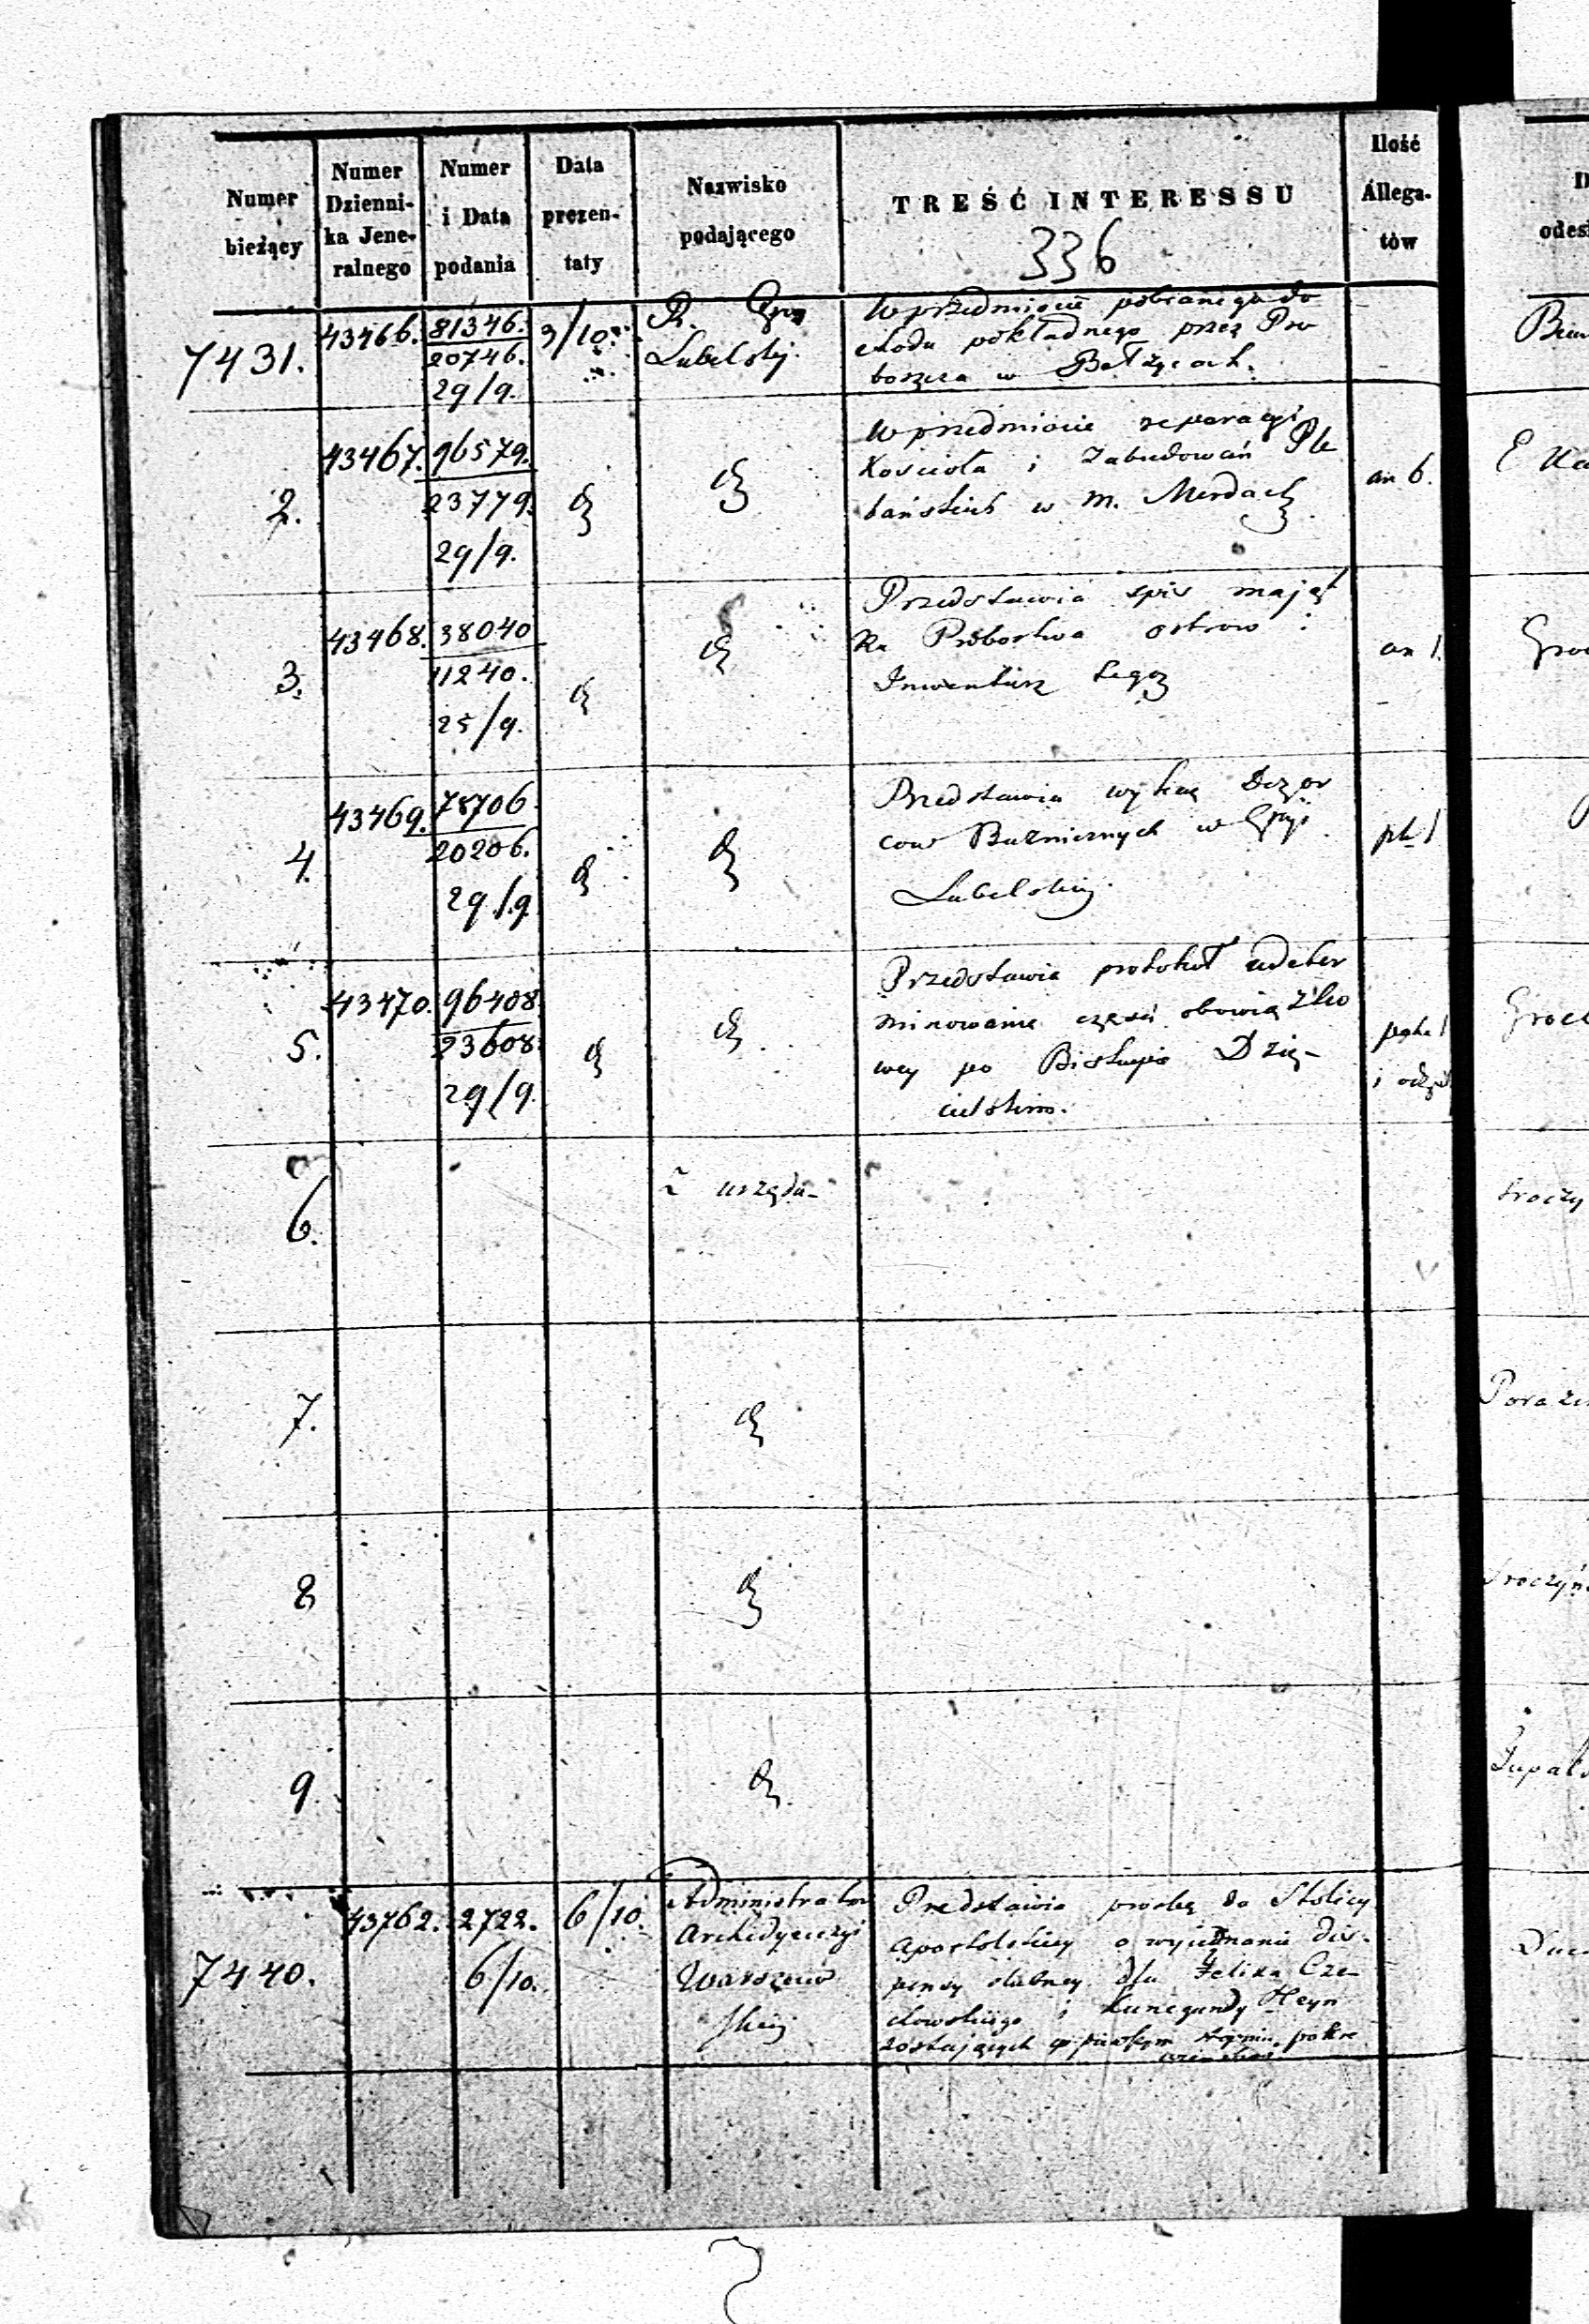 Numer bieżący
Numer Dzienni-ka Jene-ralnego
Numer i Data podania
Data prezen-taty
Nazwisko podającego
TREŚĆ INTERESSU
Ilość Allega-tów
336
7431.
43466.
81346.
20746.
29/9.
3/10.
R.
Lubelskiej.
W przedmiocie pobranego do
chodu pokładnego przez Pro
boszcza w Bełżycach.
2.
43467.
96579.
23779.
29/9.
W przedmiocie reparacyi
Kościoła i Zabudowań Ple
bańskich w m.
an 6.
3.
43468.
38040
11240.
25/9.
Przedstawia spis mająt
ku Probostwa Ostrow i
Inwentarz tegoz
an 1.
4.
43469.
78706.
20206.
29/9
Przedstawia wykaz Dozor
cow Bużnicznych w
Lubelskiej.
5.
43470.
96408.
23608.
29/9.
Przedstawia protokół
minowania części obowiązko
wey po Biskupie Dzię-
cielskim.
6.
Z urzędu-
7.
8
9
7440.
43762.
2722.
6/10.
6/10.
Administrator
Archidyecezyi
Warszaw
skiej
Predstawia prosbę do Stolicy
Apostolskiey o wyiednanie dis-
pensy slubney dla Felixa Cze-
chowskiego i Kunegundy Heyn
zostających w stopniu pokre
wieństwa.